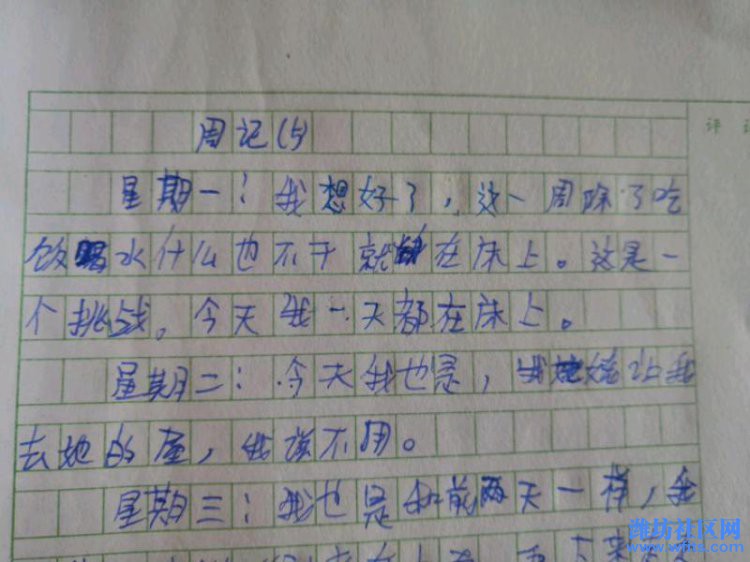 周记(5)
评 语
星期一：我想好了，这一周除了吃
饭喝水什么也不干就躺在床上。这是一
个挑战。今天我一天都在床上。
星期二：今天我也是，我姥姥让我
去她的屋，我说不用。
星期三：我也是和前两天一样，我
潍坊社区网